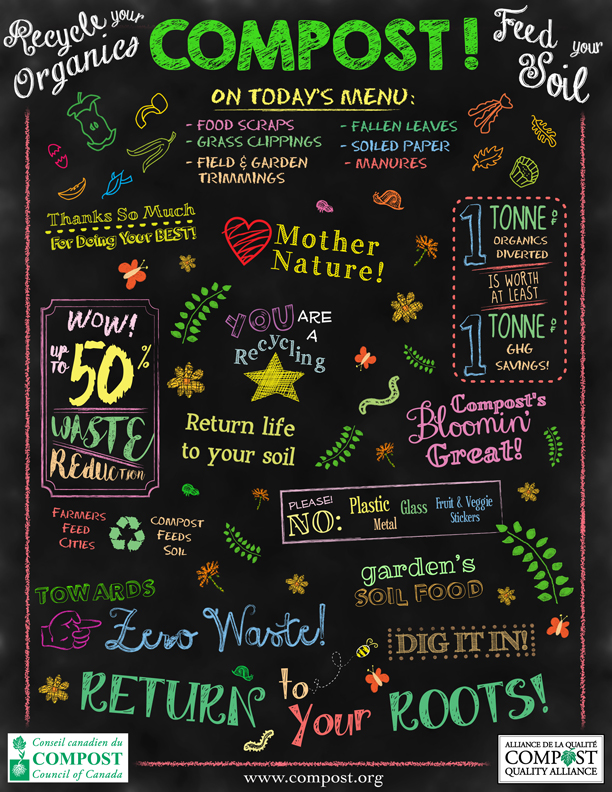 Recycle your
Organics
COMPOST!
Feed your
Soil
ON TODAY'S MENU:
- FOOD SCRAPS
- GRASS CLIPPINGS
- FIELD & GARDEN
TRIMMINGS
- FALLEN LEAVES
- SOILED PAPER
- MANURES
Thanks So Much
For Doing Your BEST!
Mother
Nature!
1 TONNE OF
ORGANICS
DIVERTED
IS WORTH
AT LEAST
1 TONNE OF
GHG
SAVINGS!
WOW!
UP TO 50%
WASTE
REDUCTION
YOU ARE
A
Recycling
Return life
to your soil
Compost's
Bloomin'
Great!
PLEASE!
NO:
Plastic
Metal
Glass
Fruit & Veggie
Stickers
FARMERS
FEED
CITIES
COMPOST
FEEDS
SOIL
garden's
SOIL FOOD
TOWARDS
Zero Waste!
DIG IT IN!
RETURN to Your ROOTS!
Conseil canadien du
COMPOST
Council of Canada
www.compost.org
ALLIANCE DE LA QUALITÉ
COMPOST
QUALITY ALLIANCE